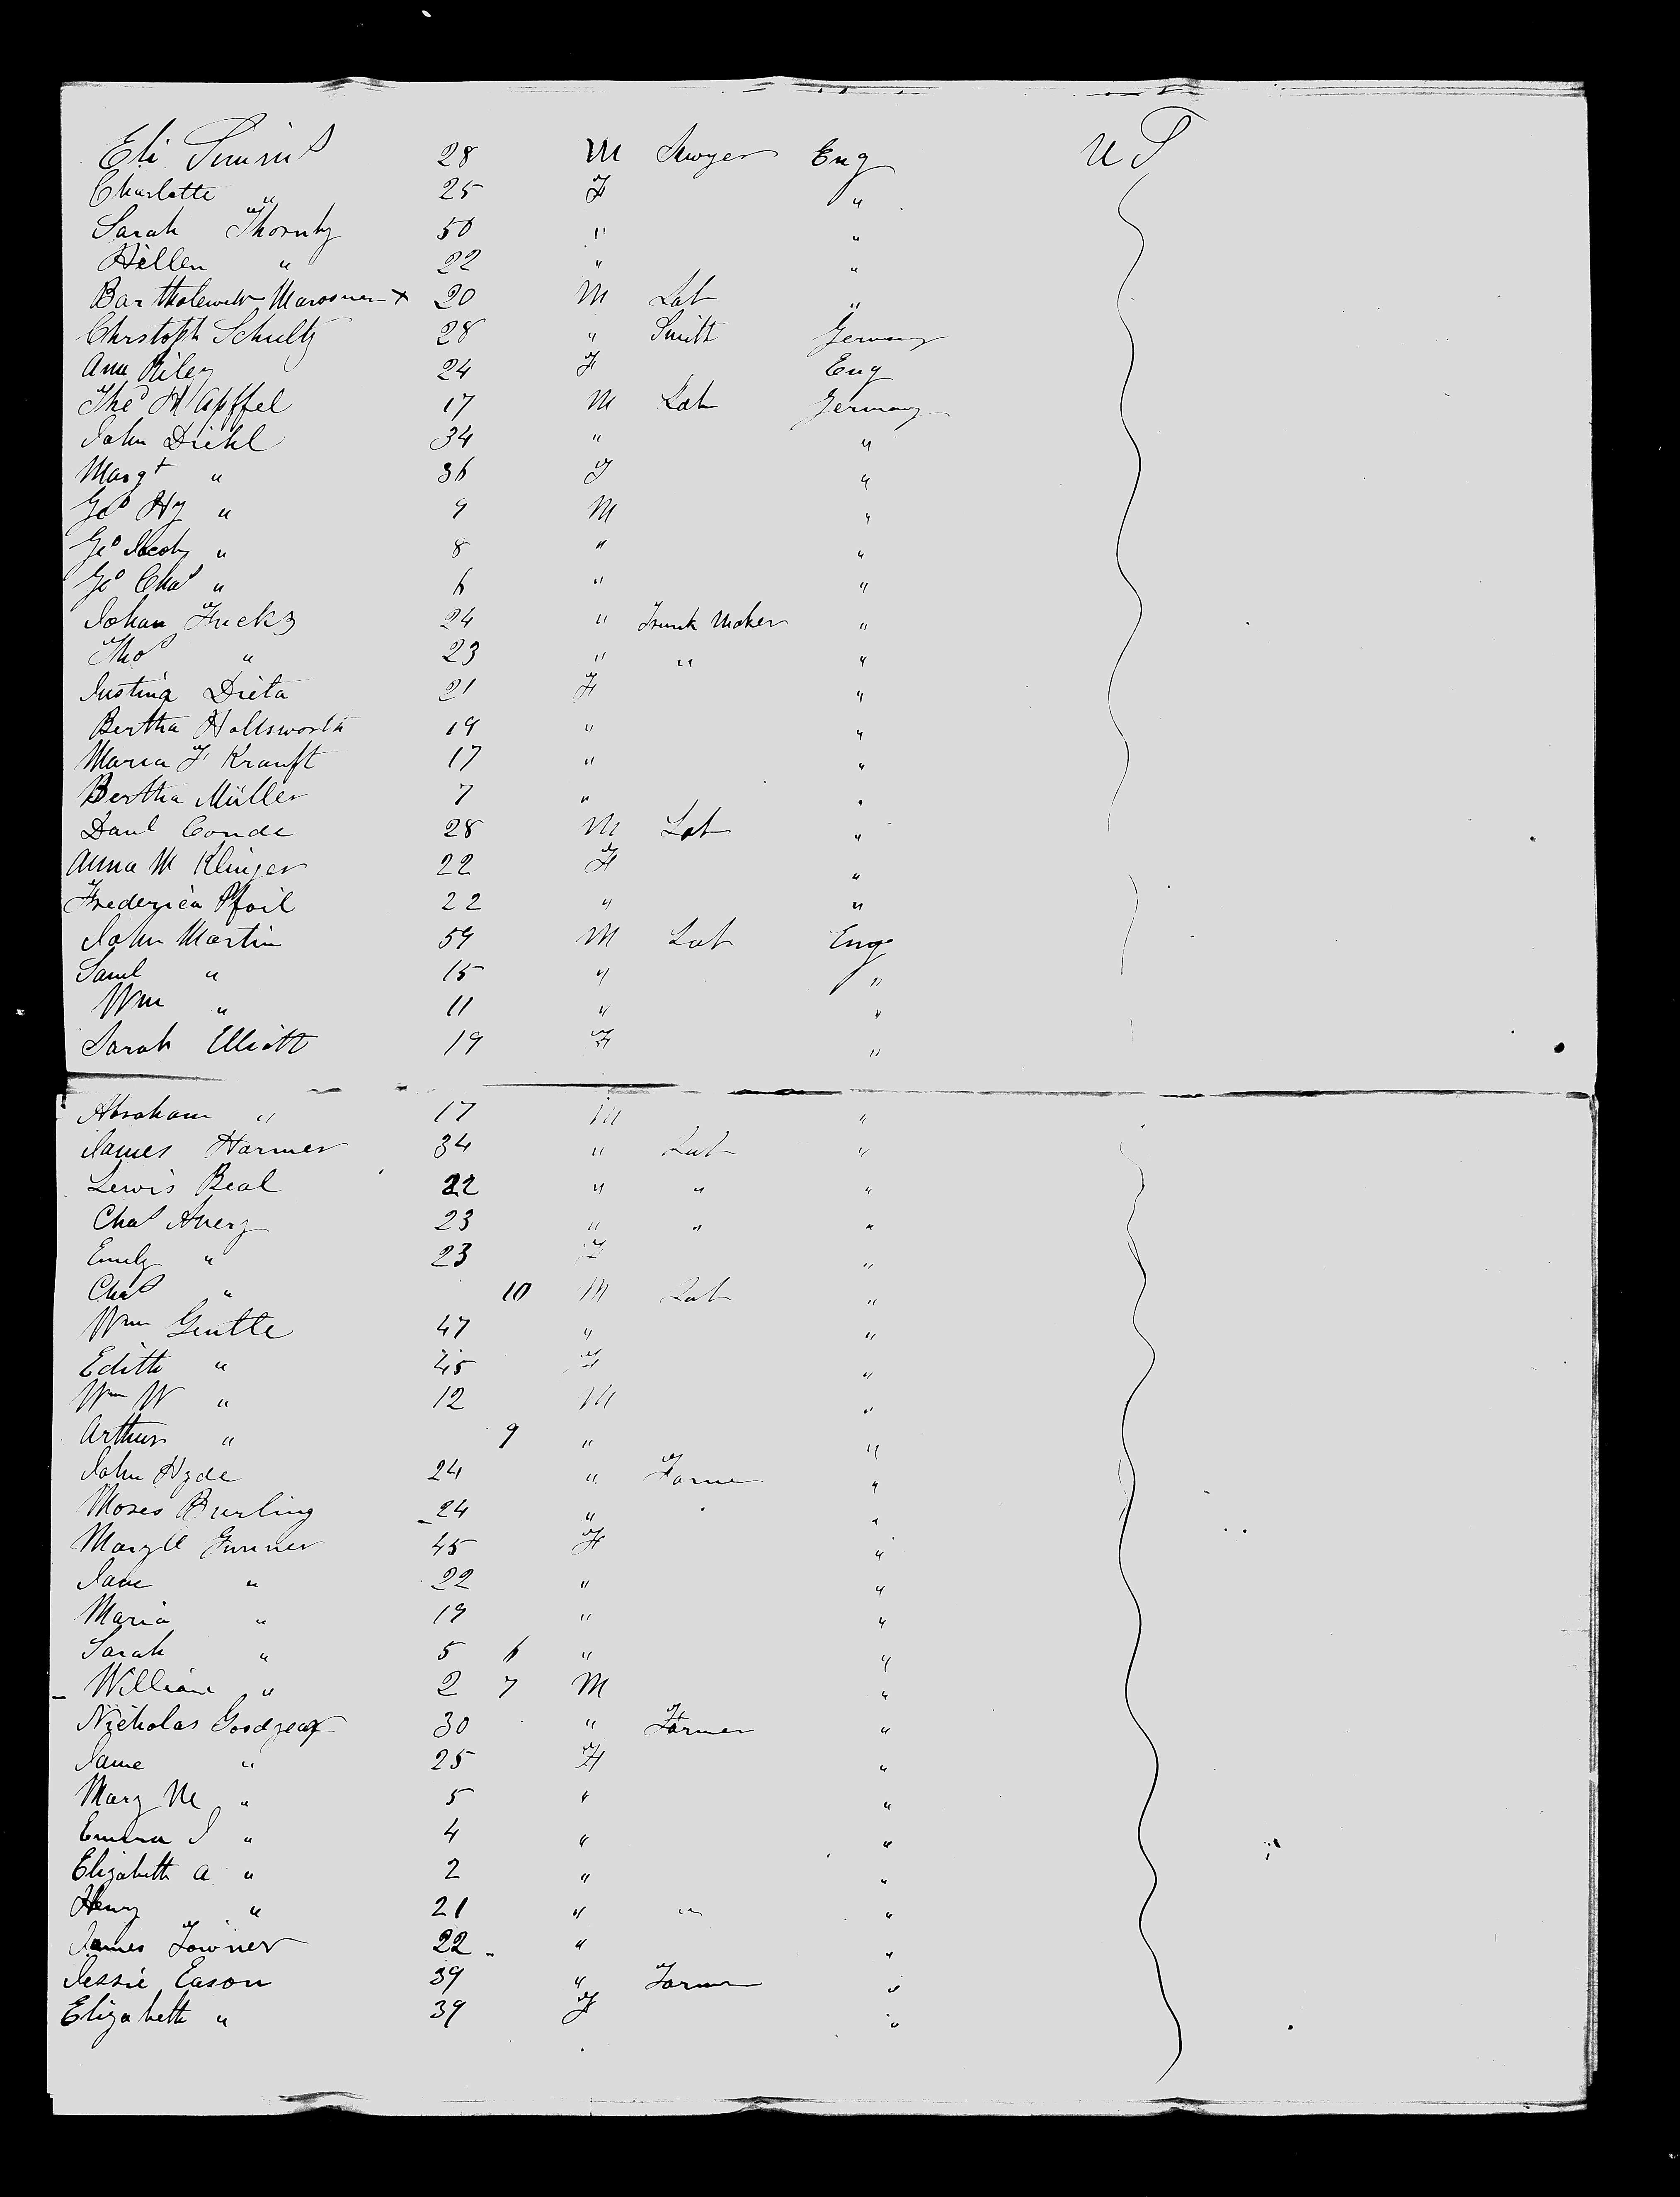 Eli Simms 28 M Sawyer Eng U S
Charlotte " 25 F "
Sarah Thornby 50 " "
Hellen " 22 " "
Bartholewew x 20 M Lab "
Chrstoph Schultz 28 " Smith Germany
Ann Riley 24 F Eng
Theo H Apffel 17 M Lab Germany
John Diehl 34 " "
Margt " 36 F "
Geo Hy " 9 M "
Geo Jacob " 8 " "
Geo Chas " 6 " "
Johan Fricks 24 " Trunk Maker "
Tho " 23 " " "
Justina Dieta 21 F "
Bertha Hollsworth 19 " "
Maria F Kranft 17 " "
Bertha Müller 7 " "
Danl Conde 28 M Lab "
Anna M Klinger 22 F "
Frederica Pfoil 22 " "
John Martin 59 M Lab Eng
Saml " 15 " "
Wm " 11 " "
Sarah Elliott 19 F "
Abraham " 17 M "
James Harmer 34 " Lab "
Lewis Beal 22 " " "
Chas Avery 23 " " "
Emily " 23 F "
Chas " 10 M Lab "
Wm Gentle 47 " "
Edith " 45 F "
Wm W " 12 M "
Arthur " 9 " "
John Hyde 24 " Farmer "
Moses Burling 24 " "
Mary Gunner 45 F "
Jane " 22 " "
Maria " 19 " "
Sarah " 5 6 " "
William " 2 7 M "
Nicholas Goodgear 30 " Farmer "
Jane " 25 F "
Mary M " 5 " "
Emma J " 4 " "
Elizabeth A " 2 " "
Henry " 21 " " "
James Towner 22 " "
Jessie Eason 39 " Farmer "
Elizabeth " 39 F "